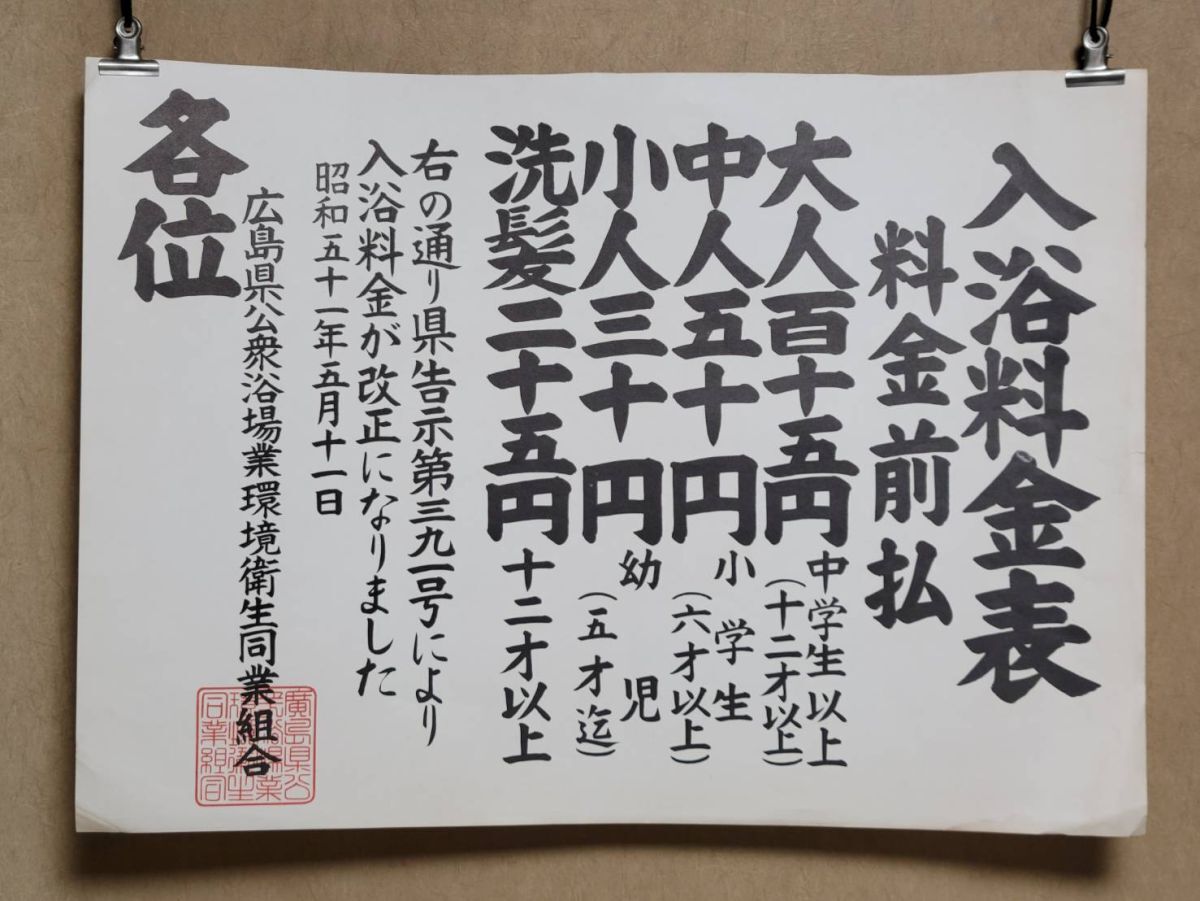 入浴料金表
料金前払
大人百十五円 中学生以上
(十二才以上)
中人五十円 小学生
(六才以上)
小人三十円 幼児
(五才迄)
洗髪二十五円 十二才以上
右の通り県告示第三九一号により
入浴料金が改正になりました
昭和五十一年五月十一日
広島県公衆浴場業環境衛生同業組合
各位